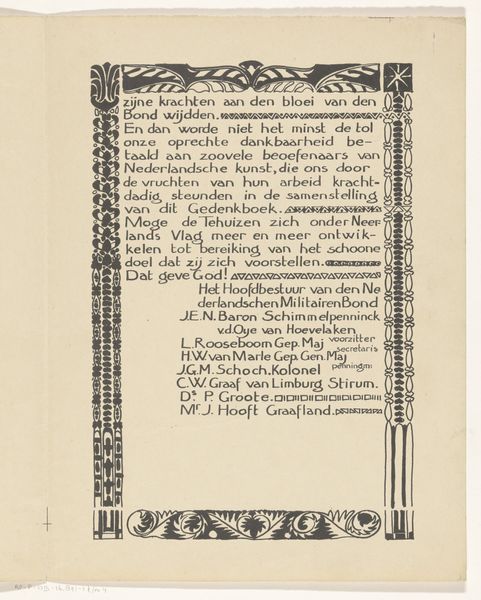 zijne krachten aan den bloei van den
Bond wijdden.
En dan worde niet het minst de tol
onze oprechte dankbaarheid be-
taald aan zoovele beoefenaars van
Nederlandsche kunst, die ons door
de vruchten van hun arbeid kracht-
dadig steunden in de samenstelling
van dit Gedenkboek.
Moge de Tehuizen zich onder Neer-
lands Vlag meer en meer ontwik-
kelen tot bereiking van het schoone
doel dat zij zich voorstellen.
Dat geve God!
Het Hoofdbestuur van den Ne
derlandschen Militairen Bond
J.E.N. Baron Schimmelpenninck
v.d. Oye van Hoevelaken
voorzitter
L. Rooseboom Gep. Maj
secretaris
H.W. van Marle Gep. Gen. Maj
penningmr
J.G.M. Schoch, Kolonel
C.W. Graaf van Limburg Stirum.
Ds. P. Groote.
Mr. J. Hooft Graafland.